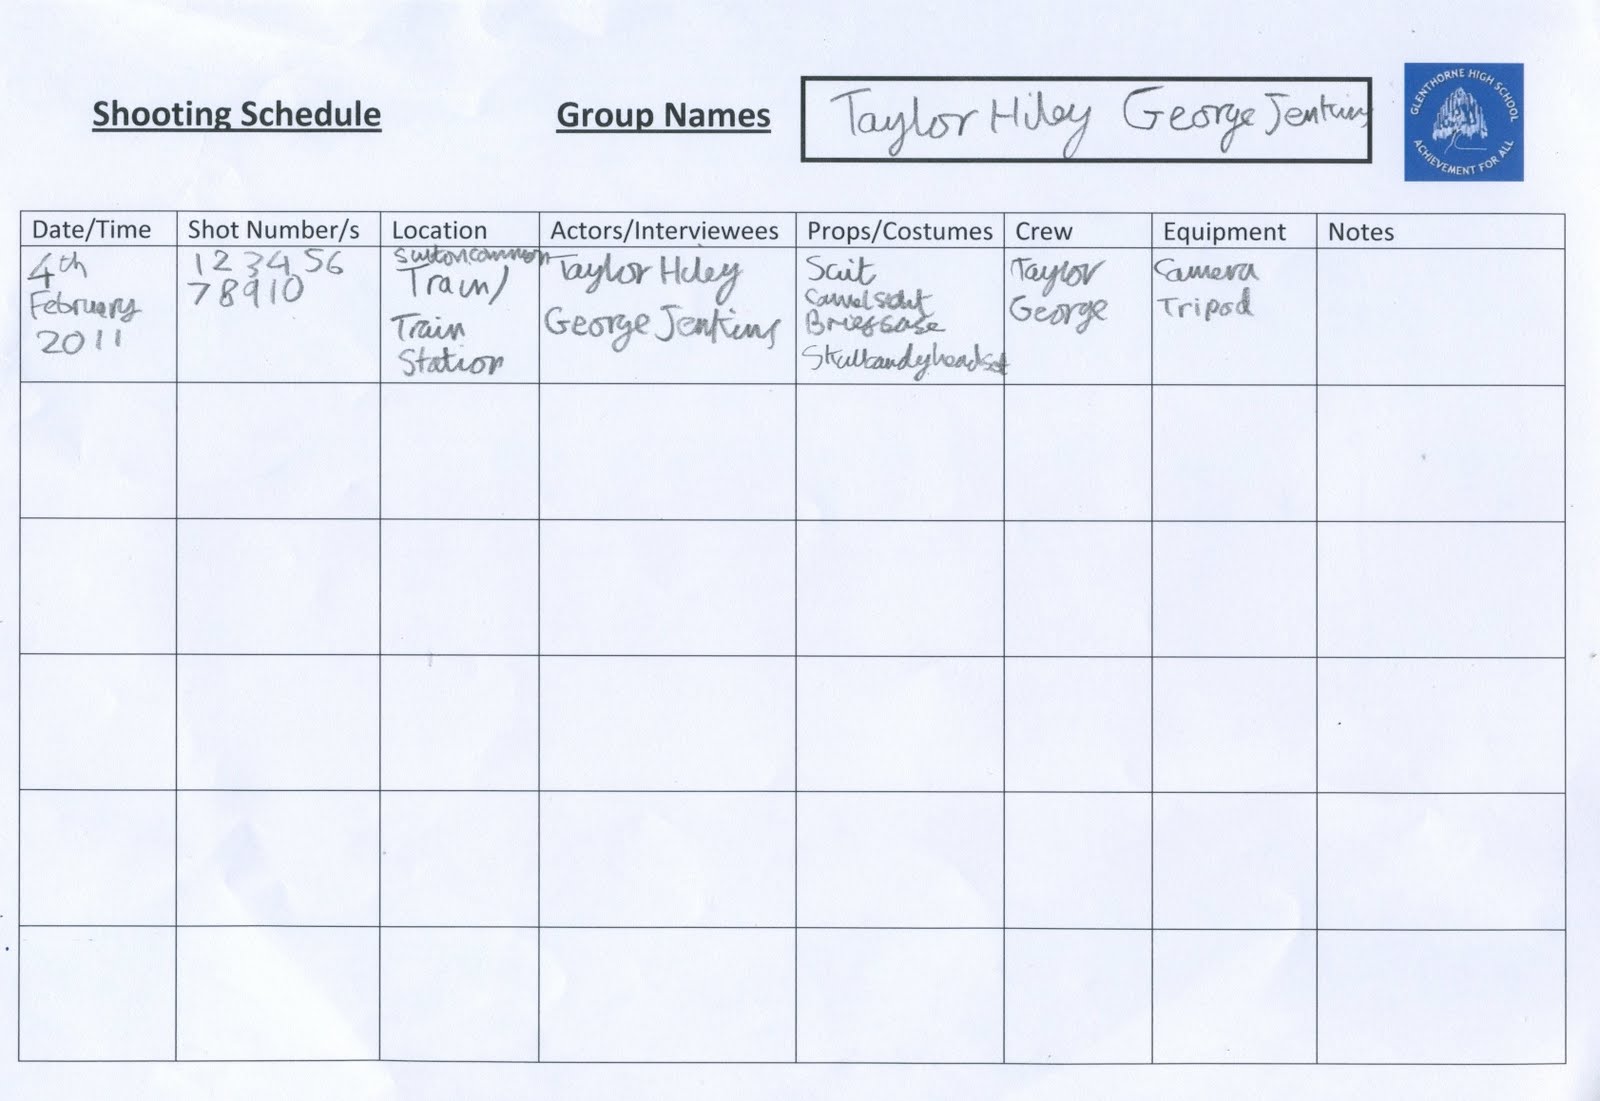 Shooting Schedule
Group Names
Taylor Hiley George Jenkins
GLENTHORNE HIGH SCHOOL
ACHIEVEMENT FOR ALL
Date/Time
Shot Number/s
Location
Actors/Interviewees
Props/Costumes
Crew
Equipment
Notes
4th
February
2011
1 2 3 4 5 6
7 8 9 10
Sutton common
Train/
Train
Station
Taylor Hiley
George Jenkins
Suit
Briefcase
Skullcandy headset
Taylor
George
Camera
Tripod